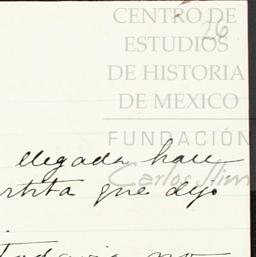 CENTRO DE
26
ESTUDIOS
DE HISTORIA
DE MEXICO
FUNDACIÓN
Carlos Slim
llegada hace
que dejo
Todavia no